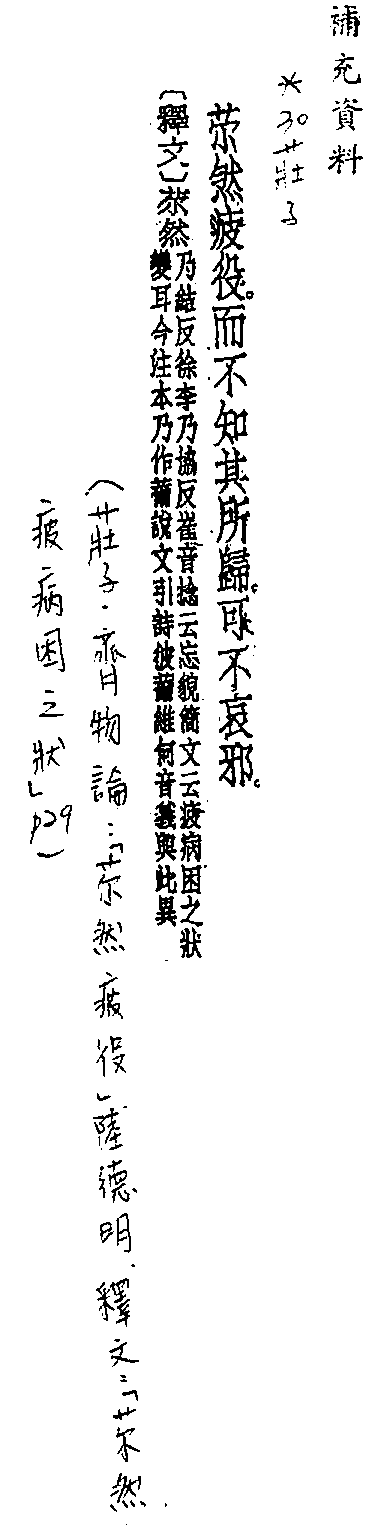 補充資料
*30莊子
苶然疲役。而不知其所歸。可不哀邪。
〔釋文〕苶然乃結反徐李乃協反崔音捻云忘貌簡文云疲病困之狀
變耳今注本乃作薾說文引詩彼薾維何音義與此異
(莊子·齊物論:「苶然疲役」陸德明.釋文:「苶然
疲病困之狀」p29)